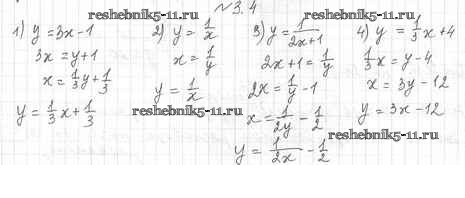 №3.4
reshebnik5-11.ru
reshebnik5-11.ru
1) y = 3x - 1
3x = y + 1
x = 1/3 y + 1/3
y = 1/3 x + 1/3
2) y = 1/x
x = 1/y
y = 1/x
reshebnik5-11.ru
3) y = 1/(2x+1)
2x + 1 = 1/y
2x = 1/y - 1
x = 1/(2y) - 1/2
y = 1/(2x) - 1/2
4) y = 1/3 x + 4
1/3 x = y - 4
x = 3y - 12
y = 3x - 12
reshebnik5-11.ru